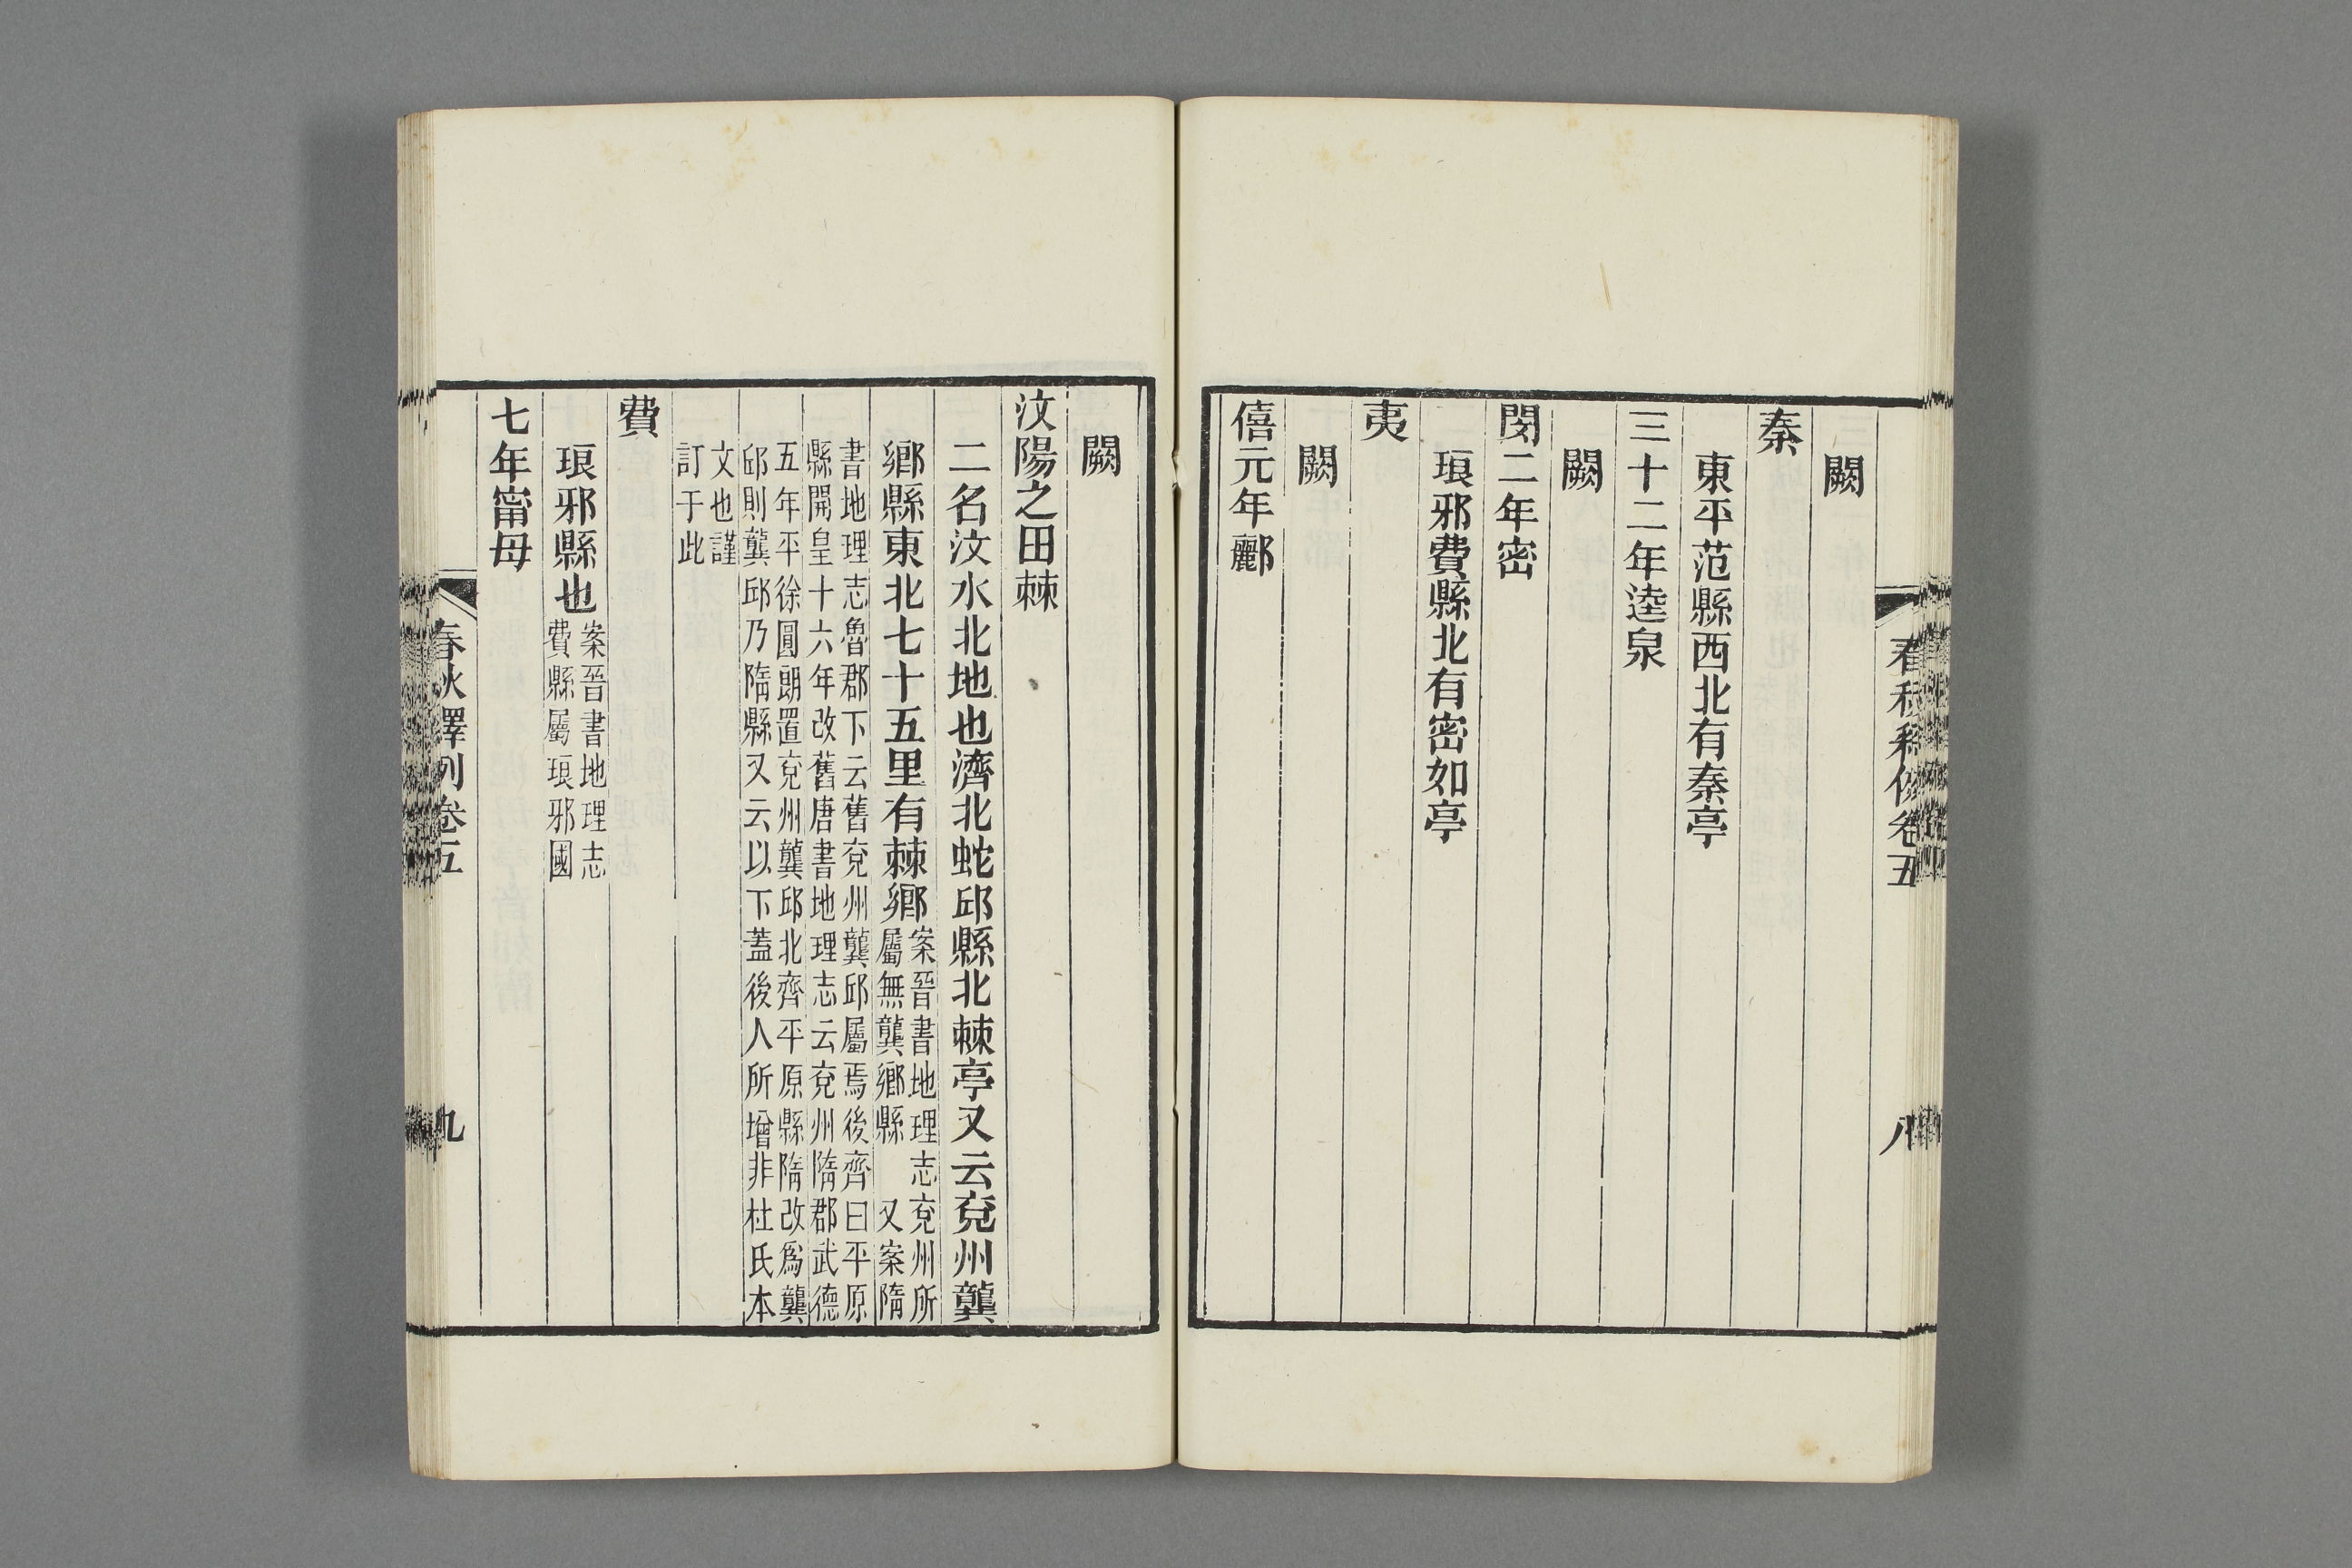 闕
秦
東平范縣西北有秦亭
三十二年逵泉
闕
閔二年密
琅邪費縣北有密如亭
夷
闕
僖元年酈
闕
汶陽之田棘
二名汶水北地也濟北蛇邱縣北棘亭又云兗州龔
鄉縣東北七十五里有棘鄉
案晉書地理志兗州所
屬無龔鄉縣 又案隋
書地理志魯郡下云舊兗州龔邱屬焉後齊曰平原
縣開皇十六年改舊唐書地理志云兗州隋郡武德
五年平徐圓朗置兗州龔邱北齊平原縣隋改爲龔
邱則龔邱乃隋縣又云以下蓋後人所增非杜氏本
文也謹
訂于此
費
琅邪縣也
案晉書地理志
費縣屬琅邪國
七年甯母
春秋釋例卷五
九